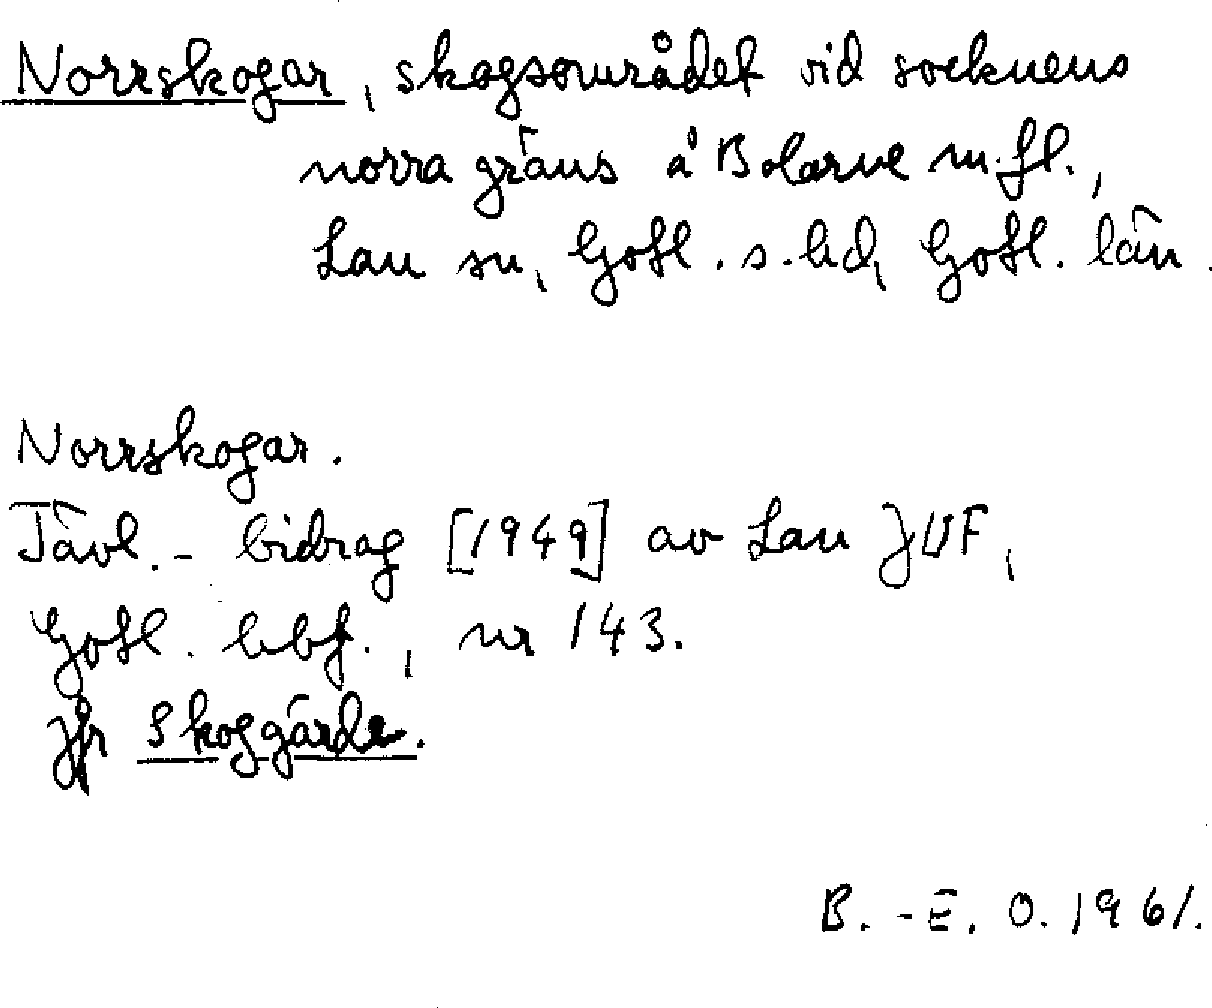 Norrskogar, skogsområdet vid socknens
norra gräns å Bolarve m.fl.,
Lau sn, Gotl. s. hd, Gotl. län.
Norrskogar.
Tävl.- bidrag [1949] av Lau JUF,
Gotl. hbf., nr 143.
Jfr Skoggärde.
B.-E. O. 1961.